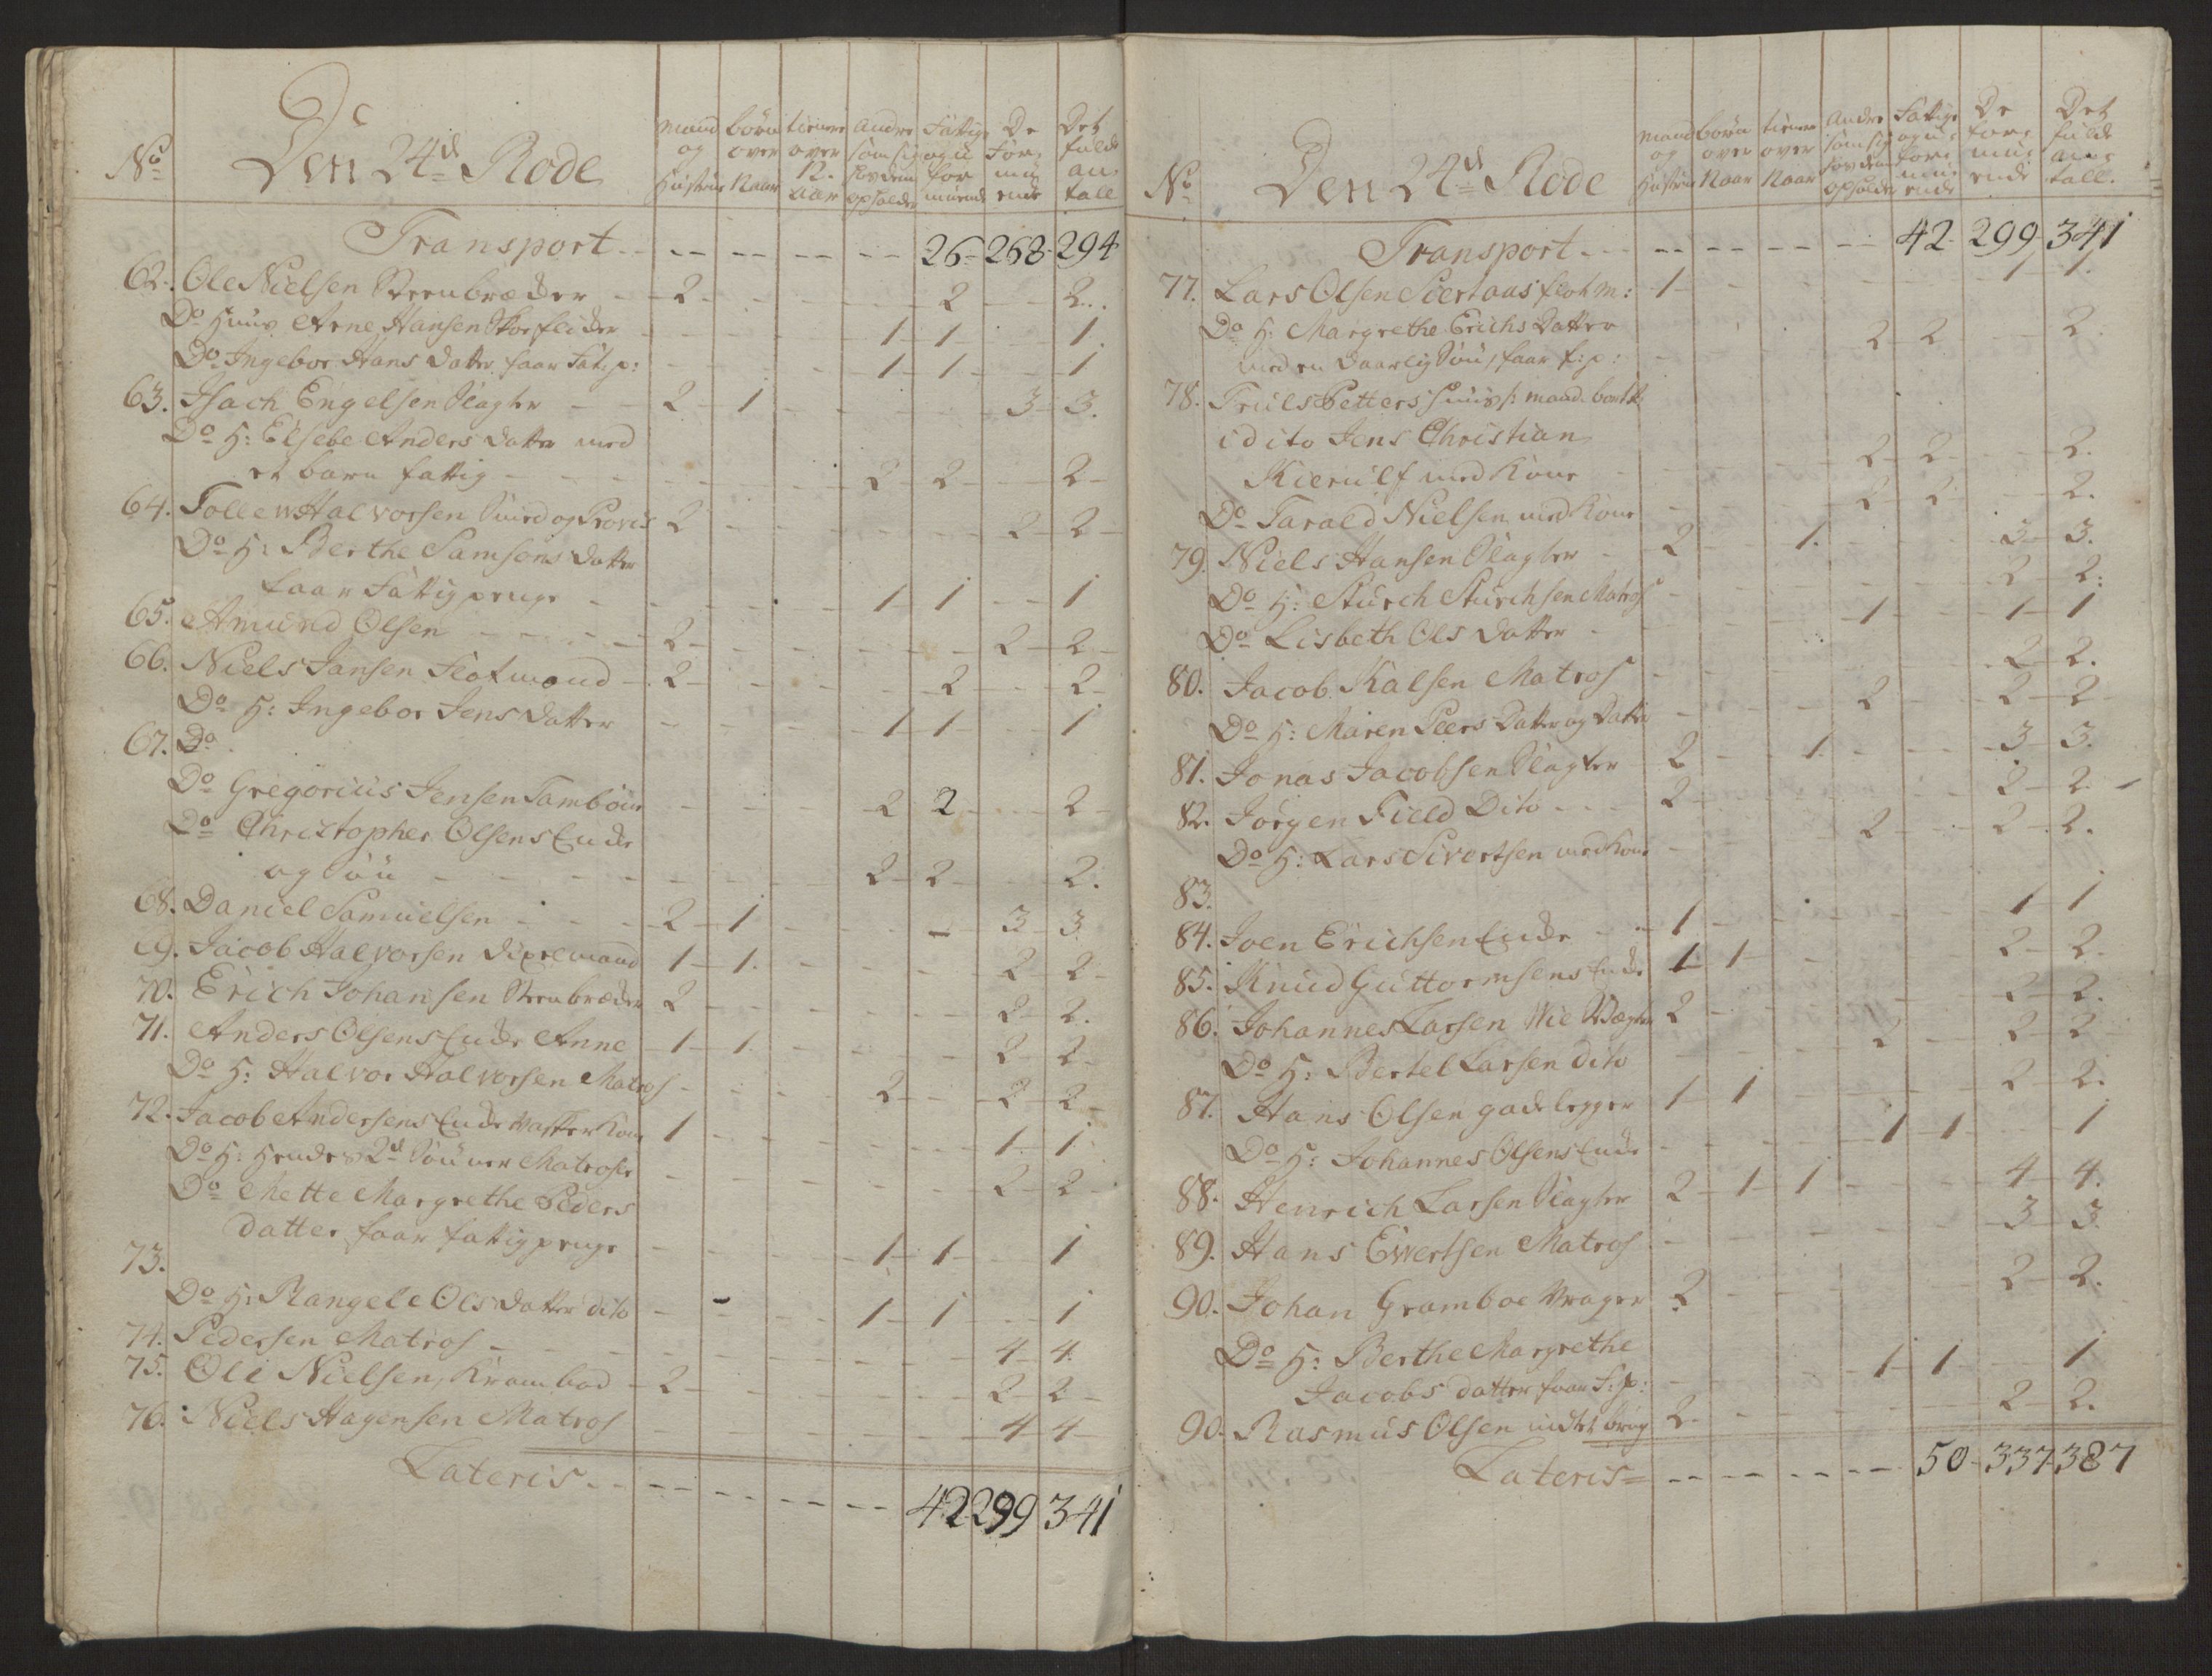 No
Den 24d Rode
Mand og Hustrue
börn over 12 aar
tienere over 12. aar
Andre som sig hos dem opholder
Fattige og u for muende
De For mu ende
Det fulde an tall
Transport - - - - - 26 - 268 - 294
62. Ole Nielsen Steenbræder - 2 - - - - 2 - - 2
Do Huus Arne Hansen Skoeflider - - - - 1 - 1 - - 1.
Do Ingebor Hans datter faar Fat: p: - - - - 1 - 1 - - 1
63. Isach Engelsen Slagter - 2 - 1 - - - - 3 - 3.
Do H: Elsebe Anders datter med
et barn fattig - - - - 2 - 2 - - 2 -
64. Tollew Halvorsen Smed og 2 - - - - - 2 - 2 -
Do H: Berthe Samsons datter
faar Fattig penge - - - - 1 - 1 - - 1
65. Amund Olsen - 2 - - - - - 2 - 2 -
66. Niels Jansen Flotmand - 2 - - - - 2 - - 2 -
Do H: Ingebor Jens datter - - - - 1 - 1 - - 1
67. Do
Do Gregorius Jensen Tambour - - - 2 2 - - 2 -
Do Christopher Olsens Enke
og Sön - - - - 2 - 2 - - 2.
68. Daniel Samuelsen - 2 - 1 - - - - 3 - 3
69. Jacob Halvorsen 1 - 1. - - - - 2 - 2 -
70. Erich Johansen Steenbræder 2 - - - - - 2 - 2.
71. Anders Olsens Enke Anne - 1 - 1. - - - - 2 - 2 -
Do H: Halvor Halvorsen Matros - - - 2 - - 2 - 2 -
72. Jacob Andersens Enke Vaskerkone 1 - - - - - 1 - 1.
Do H: Hendes 2d Sönner Matroser - - - - - - 2 - 2 -
Do Mette Margrethe Peders
datter faar fattig penge - - - - 1 - 1 - - 1
73.
Do H: Rangele Ols datter dito - - - - 1 - 1 - - 1
74. Pedersen Matros - - - - - - 4 - 4.
75. Ole Nielsen, Krambod - 2 - - - - - 2 - 2 -
76. Niels Hagensen Matros - - - - - - 4 - 4 -
Lateris - - - - - - 42 299 341
No
Den 24d Rode
Mand og Hustrue
börn over 12 aar
tiener over 12 aar
Andre som sig hos dem opholder
Fattige og u for mu ende
De for mu ende
Det fulde an tall.
Transport - - - - - 42 - 299 - 341
77. Lars Olsen Siertaas flotm: - 1 - - - - - 1 - 1.
Do H: Margrethe Erichs Datter
med en daarlig Sön, faar f: p: - - - - 2 2 - - 2.
78. Truls Petters Huus /: mand. bortt:
i dito Jens Christian
Kierulf med Kone - - - - 2 - 2 - - 2.
Do Tarald Nielsen med Kone - - - - 2 - 2 - - 2.
79. Niels Hansen Slagter - 2 - - 1. - - - 3 - 3.
Do H: Sturch Sturchsen Matros - - - - - - 2 - 2.
Do Lisbeth Ols datter - - - - 1 - - 1 - 1
80. Jacob Kalsen Matros - - - - - - 2 - 2.
Do H: Maren Peers Datter og Datter - - - 2 - - 2 - 2 -
81. Jonas Jacobsen Slagter 2 - - 1. - - - 3 - 3.
82. Jörgen Field Dito - - - 2 - - - - - 2 - 2. -
Do H: Lars Sivertsen med Kone - - - 2 - - 2 - 2.
83.
84. Joen Erichsen Enke - - 1 - - - - - 1 - 1
85. Knud Guttormsens Enke 1 - 1 - - - - 2 - 2.
86. Johannes Larsen Wie Vægter 2 - - - - - 2 - 2.
Do H: Bertel Larsen dito - - - 2 - - 2 - 2
87. Hans Olsen gadelegger 1 - 1 - - - - 2 - 2.
Do H: Johannes Olsens Enke - - - - 1 - 1 - - 1
88. Henrich Larsen Slagter 2 - 1 - 1 - - - 4 - 4.
89. Hans Ewertsen Matros - - - - - - 3 - 3.
90. Johan Gramboe Vrager 2 - - - - - 2 - 2.
Do H: Berthe Margrethe
Jacobs datter faar F: p: - - - - 1 - 1 - - 1
90. Rasmus Olsen 2 - - - - - 2 - 2.
Lateris = - - - - - 50 - 337 - 387